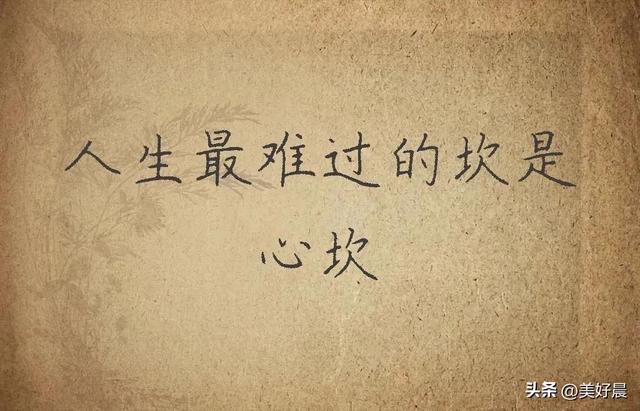 人生最难过的坎是
心坎
头条 @美好晨